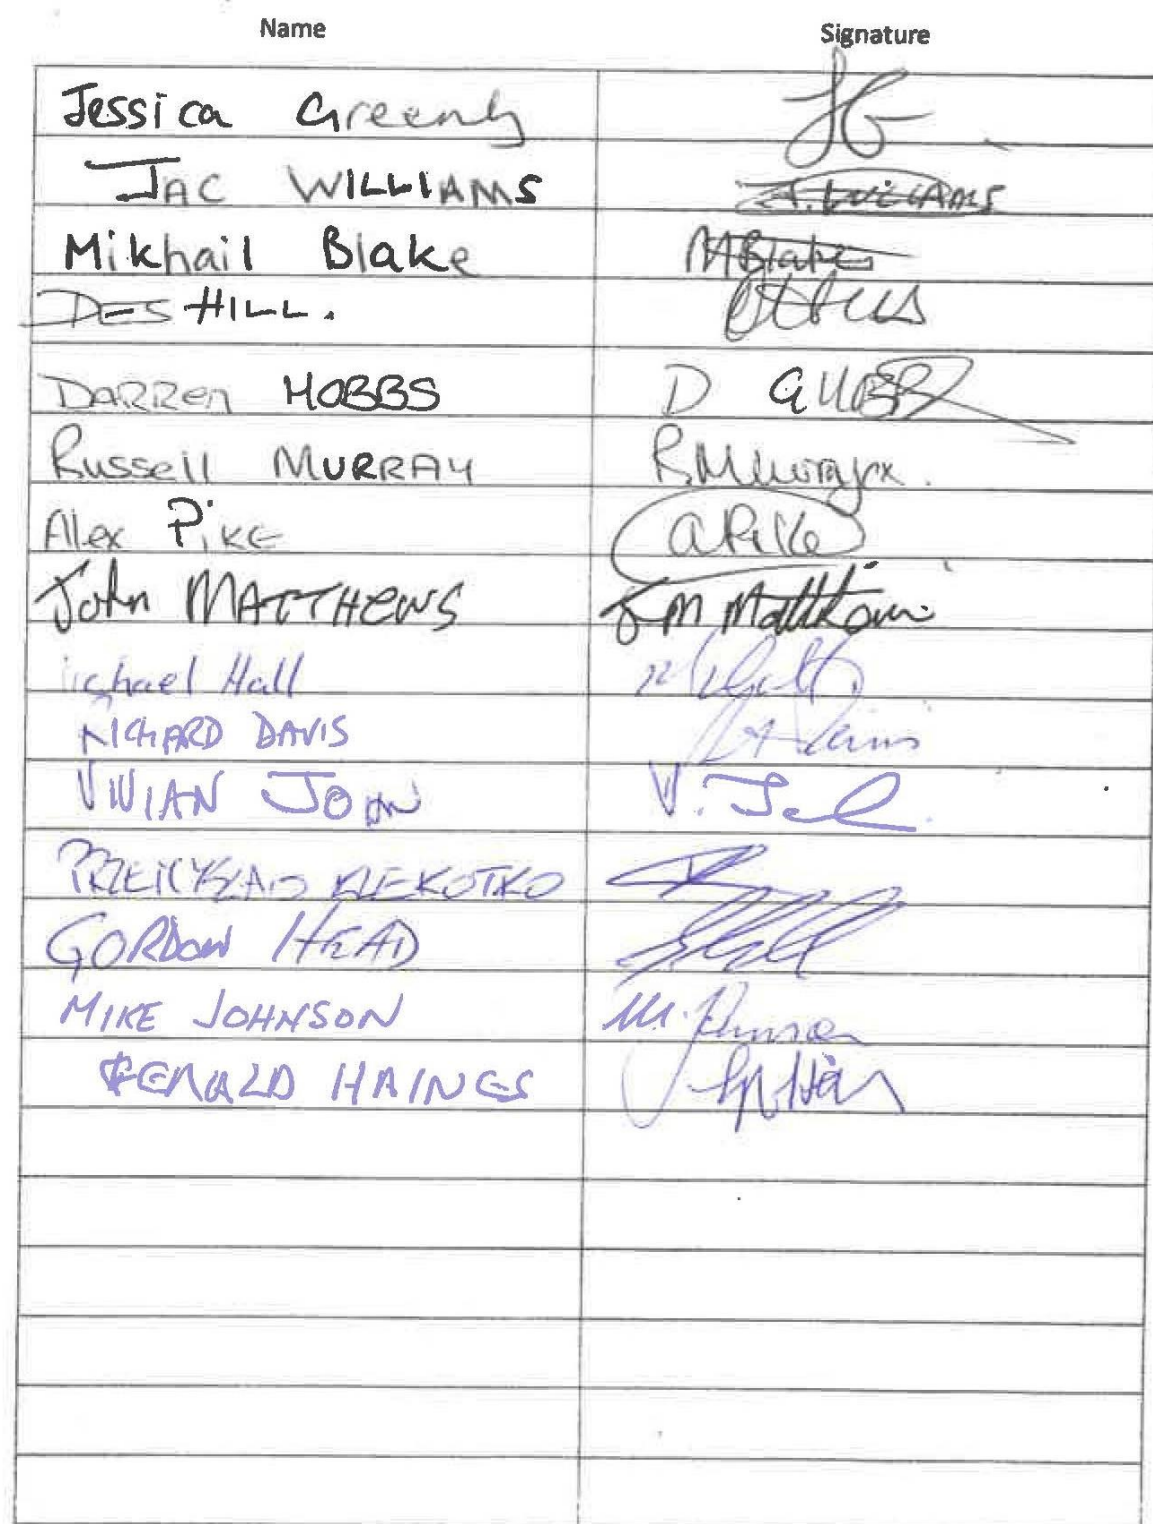 Name Signature
Jessica Greenly JG
JAC WILLIAMS J. WILLIAMS
Mikhail Blake MBlake
DES HILL.
DARREN HOBBS D G HOBBS
Russell MURRAY R.M.Murray
Alex PiKE A Pike
John MATTHEWS J M Matthews
ichael Hall
RICHARD DAVIS Davis
VIVIAN JOHN V. John
KLEKOTKO
GORDON HEAD
MIKE JOHNSON M. Johnson
GERALD HAINES